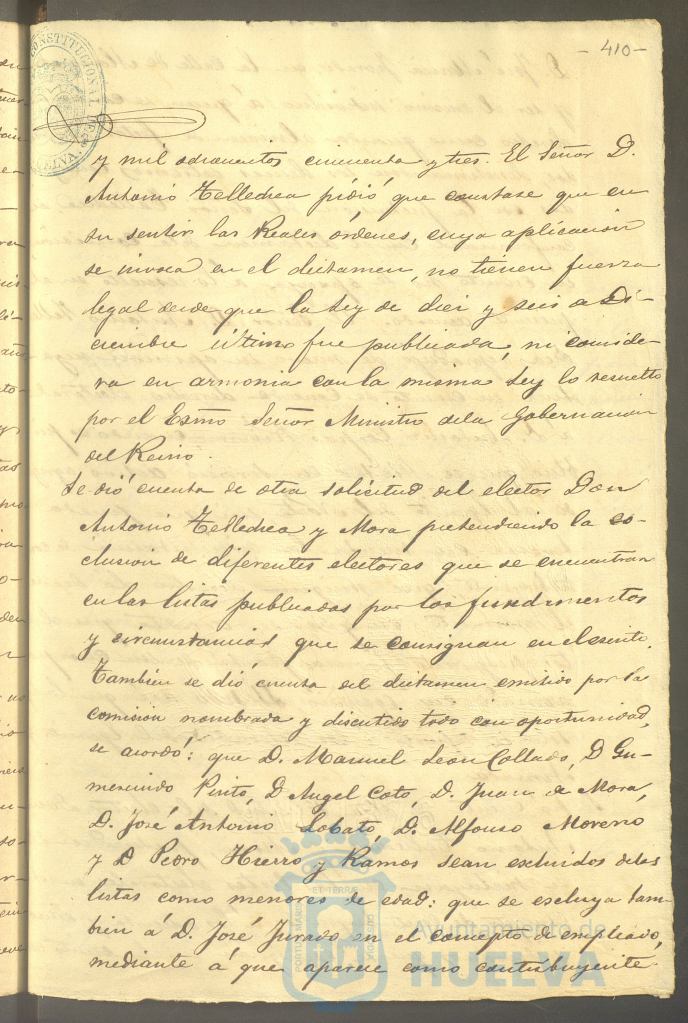 - 410 -
CONSTITUCIONAL DE
HUELVA.
y mil ochocientos cincuenta y tres. El Señor D.
Antonio Telledrea pidió que constase que en
su sentir las Reales órdenes, cuya aplicación
se invoca en el dictamen, no tienen fuerza
legal desde que la Ley de diez y seis de Di-
ciembre último fue publicada, ni conside-
ra en armonia con la misma Ley lo resuelto
por el Exmo Señor Ministro de la Gobernacion
del Reino.
Se dió cuenta de otra solicitud del elector Don
Antonio Telledrea y Mora pretendiendo la es-
clusion de diferentes electores que se encuentran
en las listas publicadas por los fundamentos
y circunstancias que se consignan en el escrito.
Tambien se dió cuenta del dictamen emitido por la
comision nombrada y discutido todo con oportunidad,
se acordó: que D. Manuel Leon Collado, D Gu-
mersindo Pinto, D Angel Coto, D. Juan de Mora,
D. José Antonio Lobato, D. Alfonso Moreno
y D Pedro Hierro y Ramos sean excluidos de las
listas como menores de edad: que se escluya tam-
bien á D. José Jurado en el concepto de empleado,
mediante á que aparece como contribuyente
Ayuntamiento de
HUELVA